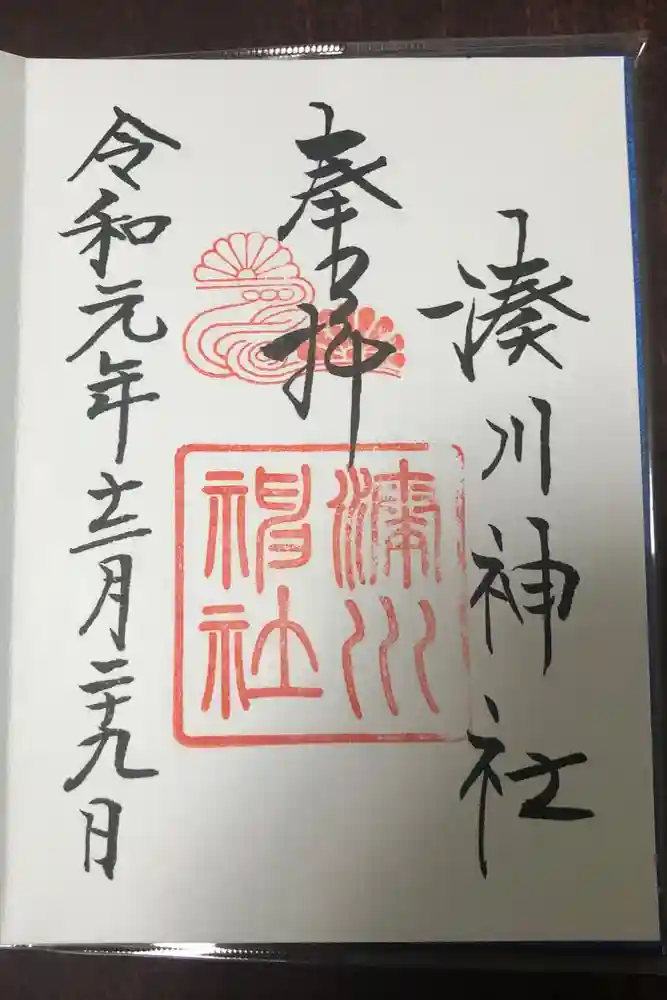 湊川神社
奉拝
湊川
神社
令和元年十二月二十九日